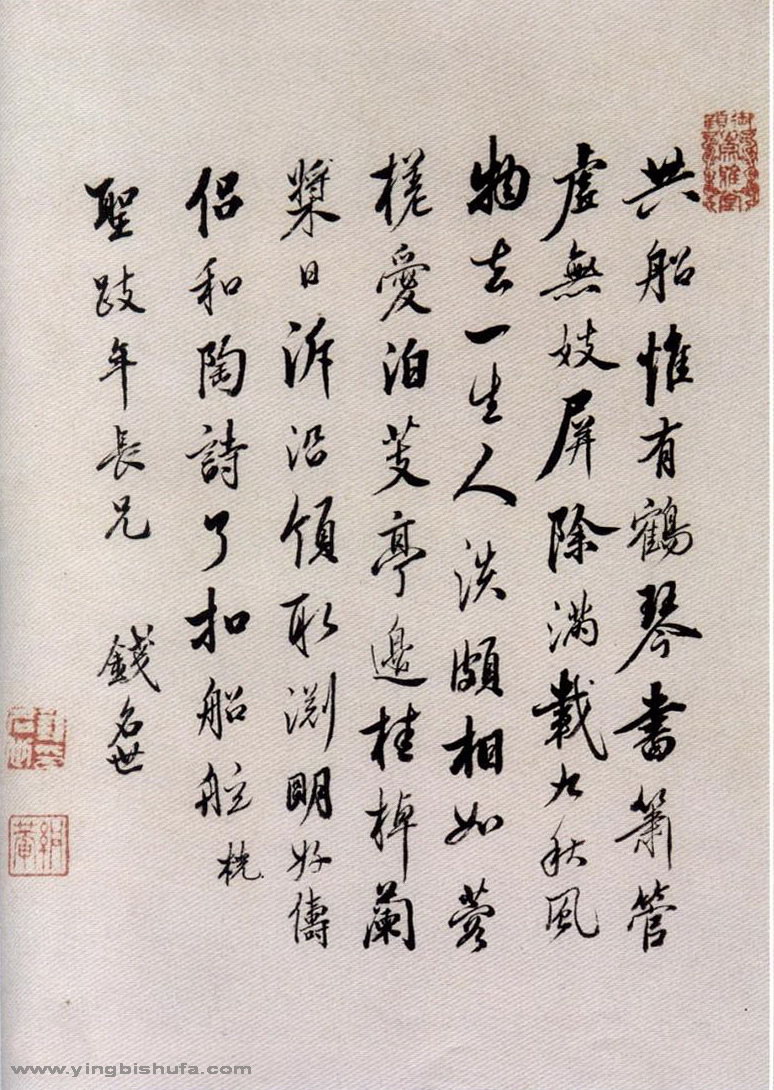 共船惟有鶴琴書簫管
虛無妓屏除滿載九秋風
物去一生人淡頗相如蓉
槎愛泊芰亭邊桂棹蘭
槳日泝沿領取淵明好儔
侶和陶詩了扣船舷
桄
聖跂年長兄
錢名世
www.yingbishufa.com